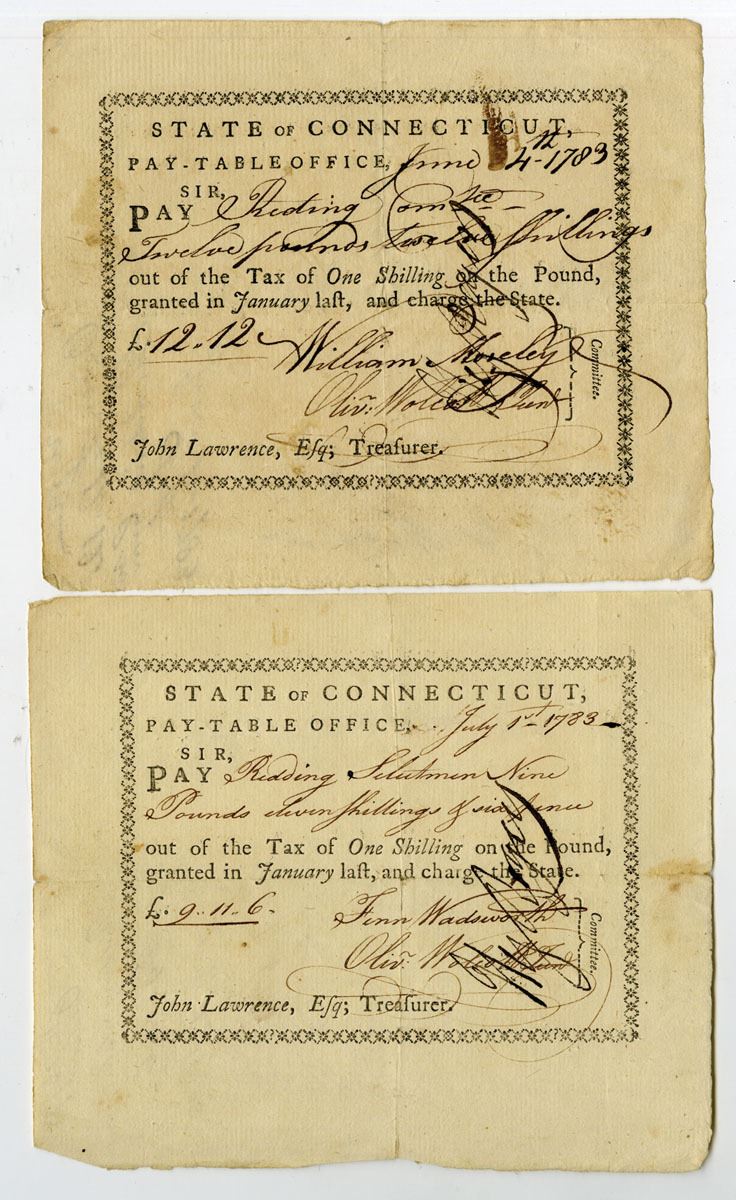 STATE OF CONNECTICUT,
PAY-TABLE OFFICE, June 4th 1783
SIR,
PAY Reding Comtee
Twelve pounds twelve shillings
out of the Tax of One Shilling on the Pound,
granted in January laſt, and charge the State.
£. 12..12
William Moseley
Olivr. Wolcott Junr
Committee.
John Lawrence, Eſq; Treaſurer.
STATE OF CONNECTICUT,
PAY-TABLE OFFICE, July 1st 1783
SIR,
PAY Redding Selectmen Nine
Pounds eleven shillings & six pence
out of the Tax of One Shilling on the Pound,
granted in January laſt, and charge the State.
£. 9..11..6
Fenn Wadsworth
Olivr. Wolcott Junr
Committee.
John Lawrence, Eſq; Treaſurer.